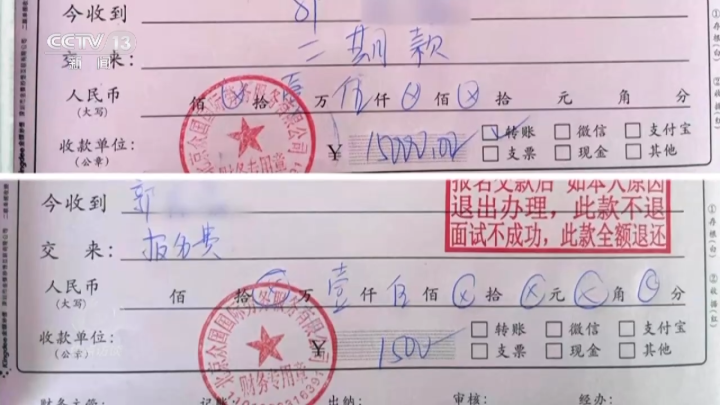 CCTV 13
新闻
今收到
交 来: 二期款
人民币 佰 拾壹万伍仟 佰 拾 元 角 分
(大写)
收款单位: ¥ 15000.00 转账 微信 支付宝
(公章) 支票 现金 其他
财务专用章
①存根(白)
②收据(红)
今收到 郭
报名交款后 如本人原因
退出办理,此款不退
面试不成功,此款全额退还
交 来: 报名费
人民币 佰 拾 万壹仟 佰 拾 元 角 分
(大写)
收款单位: 1500 转账 微信 支付宝
(公章) 支票 现金 其他
北京众国国际劳务服务有限公司
财务专用章
①存根(白)
②收据(红)
财务主管: 记账: 出纳: 审核: 经办: